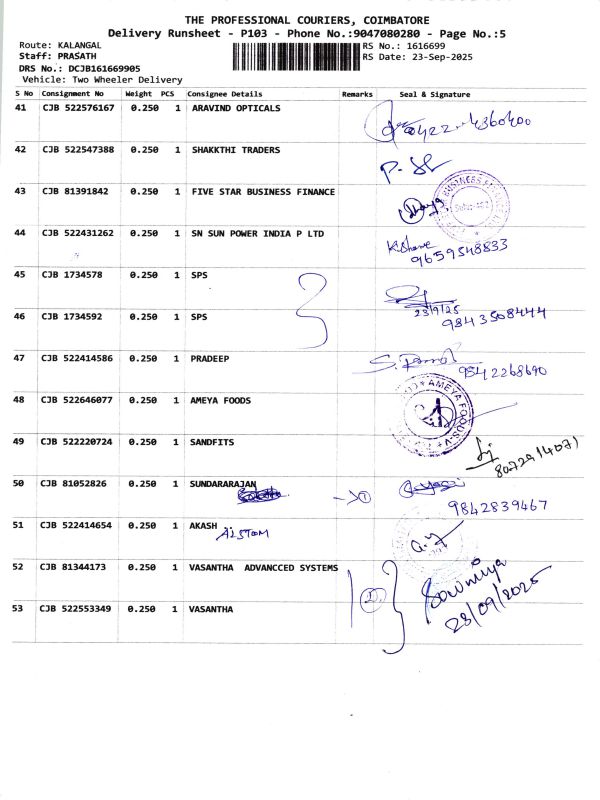 THE PROFESSIONAL COURIERS, COIMBATORE
Delivery Runsheet - P103 - Phone No.:9047080280 - Page No.:5
Route: KALANGAL RS No.: 1616699
Staff: PRASATH RS Date: 23-Sep-2025
DRS No.: DCJB161669905
Vehicle: Two Wheeler Delivery
S No Consignment No Weight PCS Consignee Details Remarks Seal & Signature
41 CJB 522576167 0.250 1 ARAVIND OPTICALS
0422-4360400
42 CJB 522547388 0.250 1 SHAKKTHI TRADERS
43 CJB 81391842 0.250 1 FIVE STAR BUSINESS FINANCE
44 CJB 522431262 0.250 1 SN SUN POWER INDIA P LTD
9659548833
45 CJB 1734578 0.250 1 SPS
23/9/25
46 CJB 1734592 0.250 1 SPS 9843508444
47 CJB 522414586 0.250 1 PRADEEP
9842268690
48 CJB 522646077 0.250 1 AMEYA FOODS
AMEYA FOODS
49 CJB 522220724 0.250 1 SANDFITS
8072914071
50 CJB 81052826 0.250 1 SUNDARARAJAN
1
9842839467
51 CJB 522414654 0.250 1 AKASH
ALSTOM
52 CJB 81344173 0.250 1 VASANTHA ADVANCCED SYSTEMS
2 Sowmiya
23/09/2025
53 CJB 522553349 0.250 1 VASANTHA